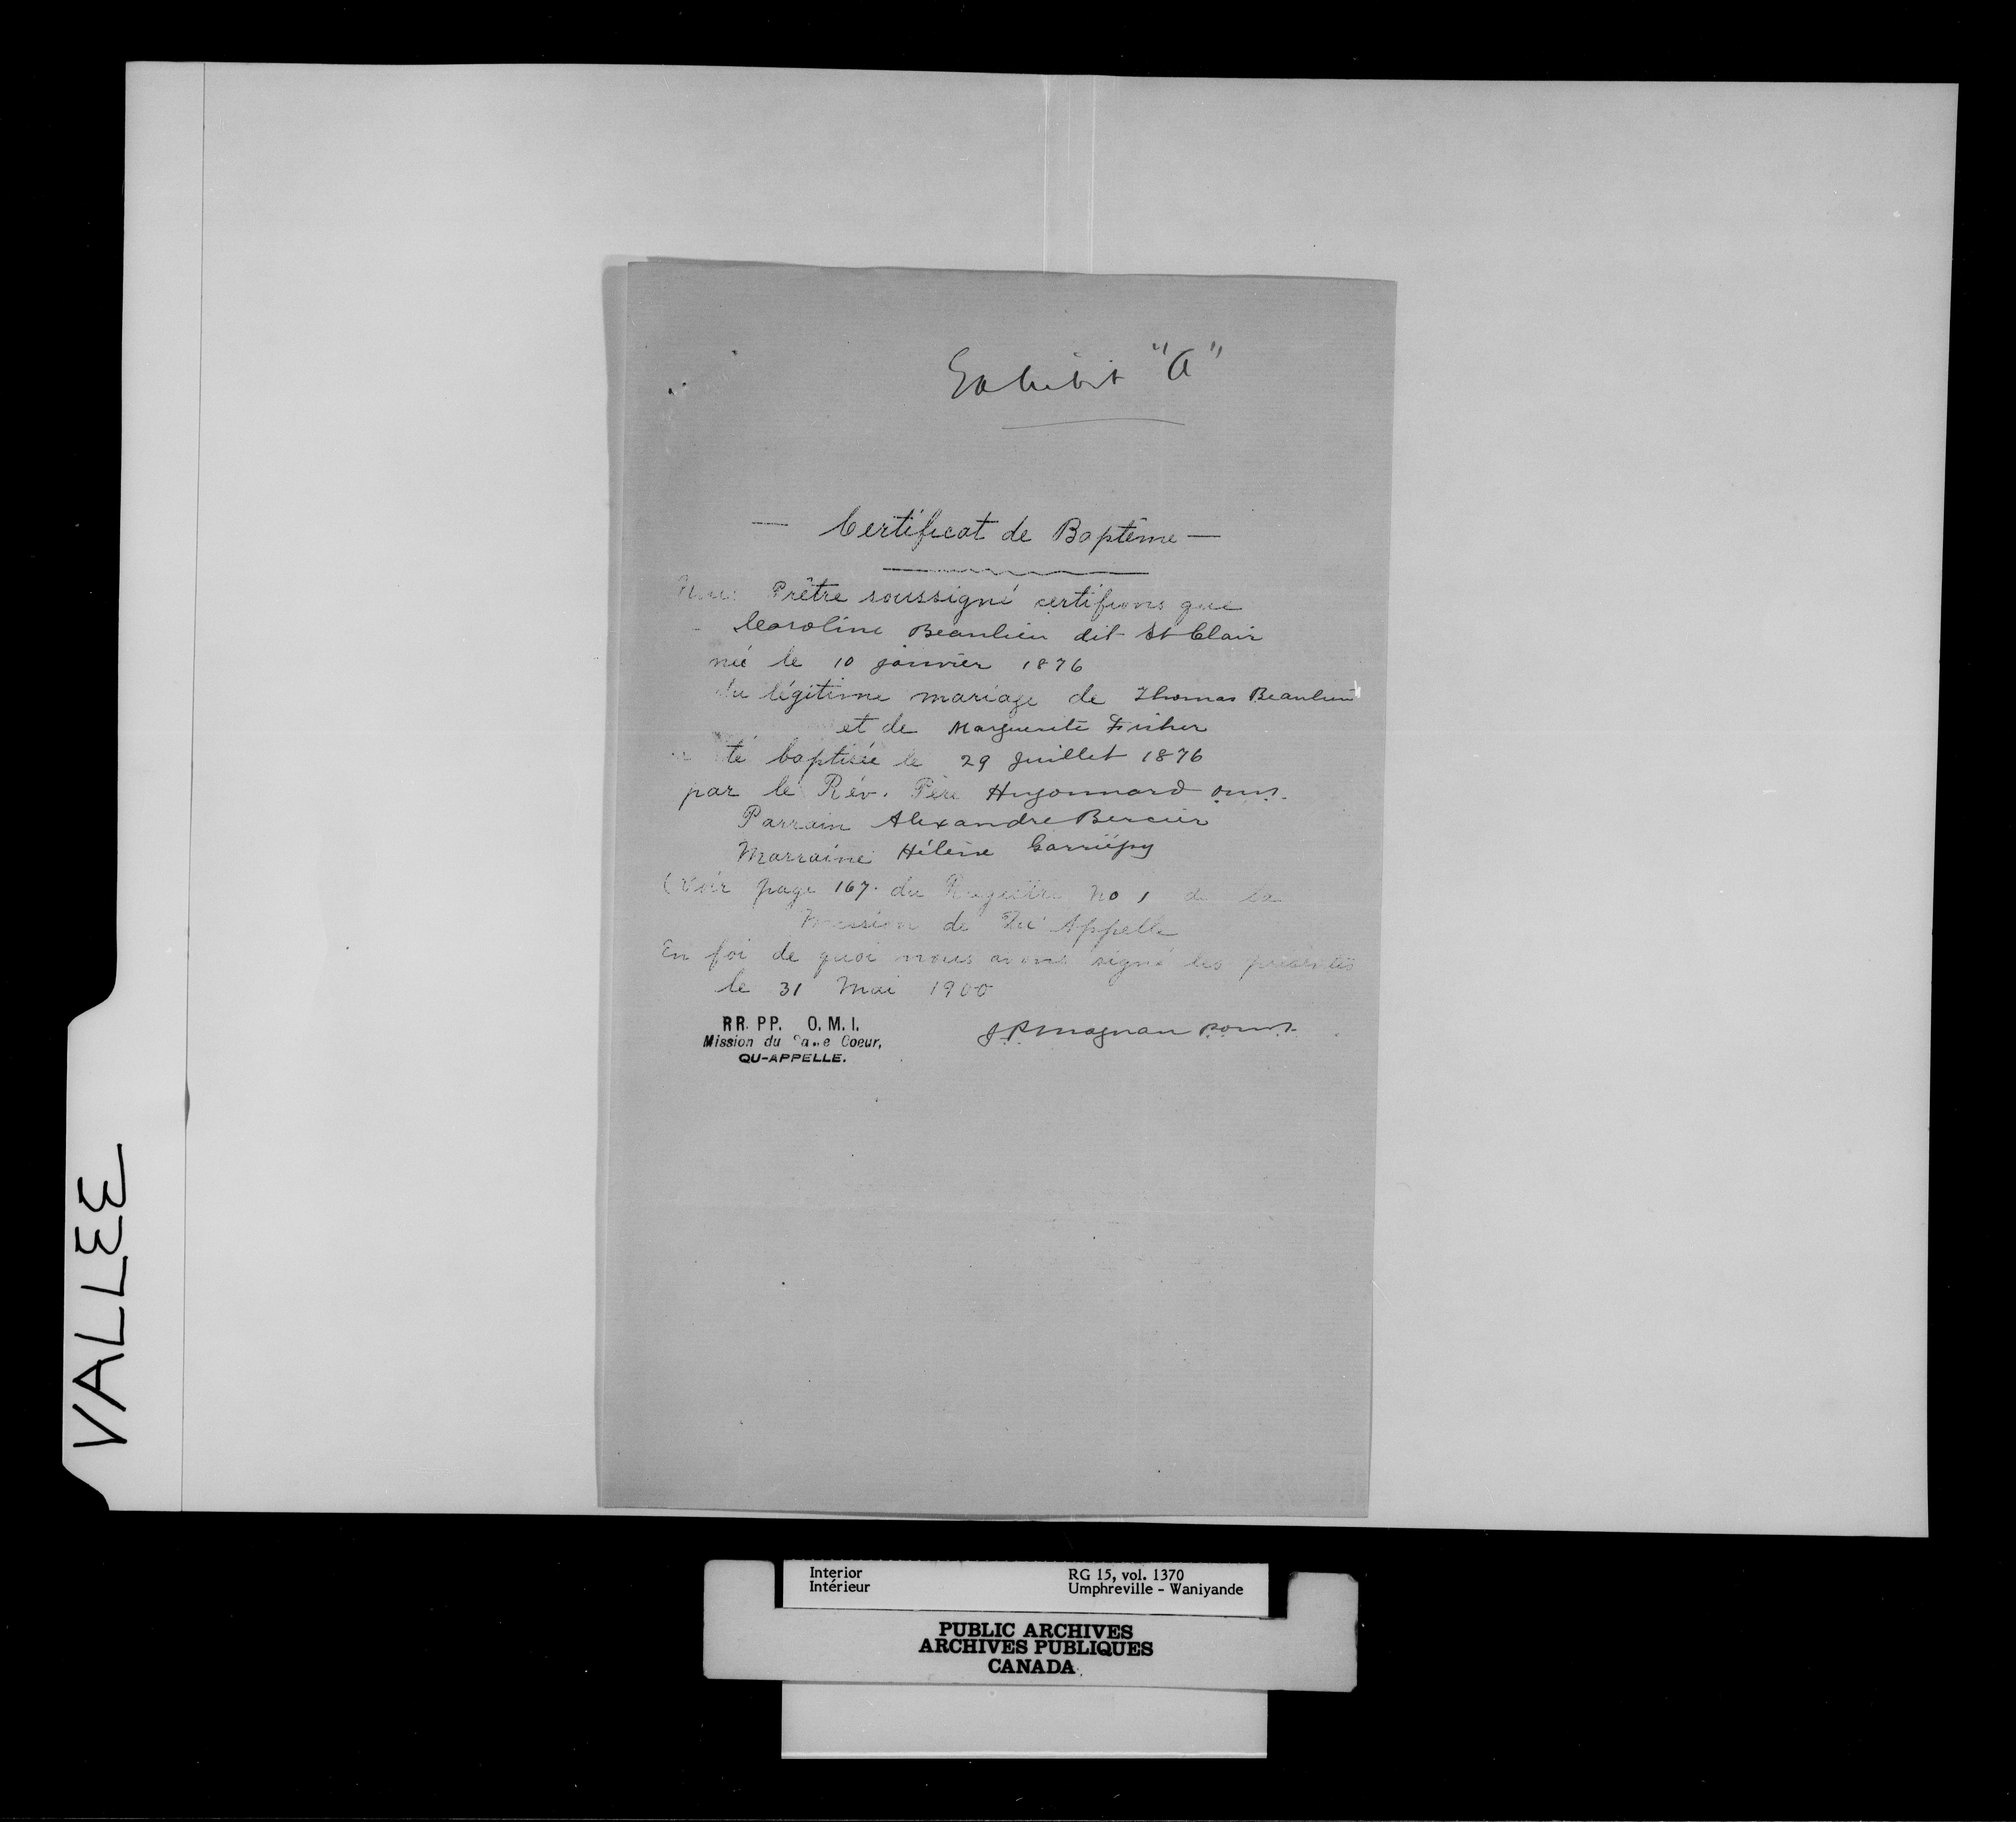 Exhibit "A"
— Certificat de Baptême —
Nous Prêtre soussigné certifions que
Caroline Beaulieu dit St Clair
née le 10 janvier 1876
du légitime mariage de Thomas Beaulieu
et de Marguerite Fisher
a été baptisée le 29 Juillet 1876
par le Rév. Père Hugonnard o.m.i.
Parrain Alexandre Bercier
Marraine Hélène Garriépy
(Voir page 167 du Régistre No 1 de la
Mission de Qu'Appelle
En foi de quoi nous avons signé les présentes
le 31 Mai 1900
RR. PP. O. M. I.
Mission du Coeur,
QU-APPELLE.
J.P. Magnan p.o.m.i.
VALLEE
Interior RG 15, vol. 1370
Intérieur Umphreville - Waniyande
PUBLIC ARCHIVES
ARCHIVES PUBLIQUES
CANADA